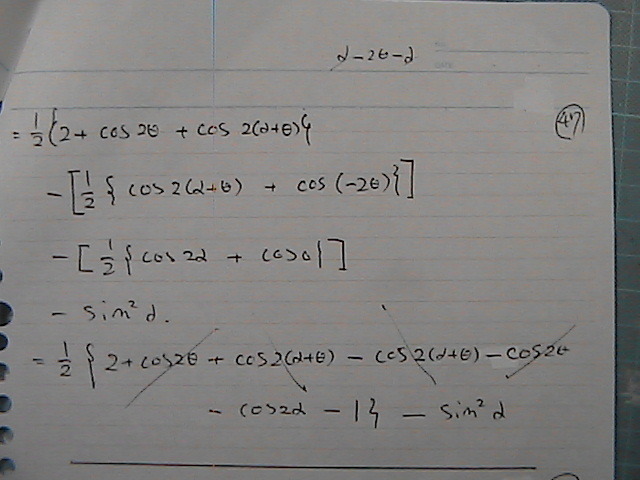 α-2θ-α
47
= 1/2 {2 + cos 2θ + cos 2(α+θ)}
- [1/2 { cos 2(α+θ) + cos (-2θ)}]
- [1/2 { cos 2α + cos 0}]
- sin² α.
= 1/2 { 2 + cos2θ + cos2(α+θ) - cos2(α+θ) - cos2θ
- cos2α - 1} - sin² α